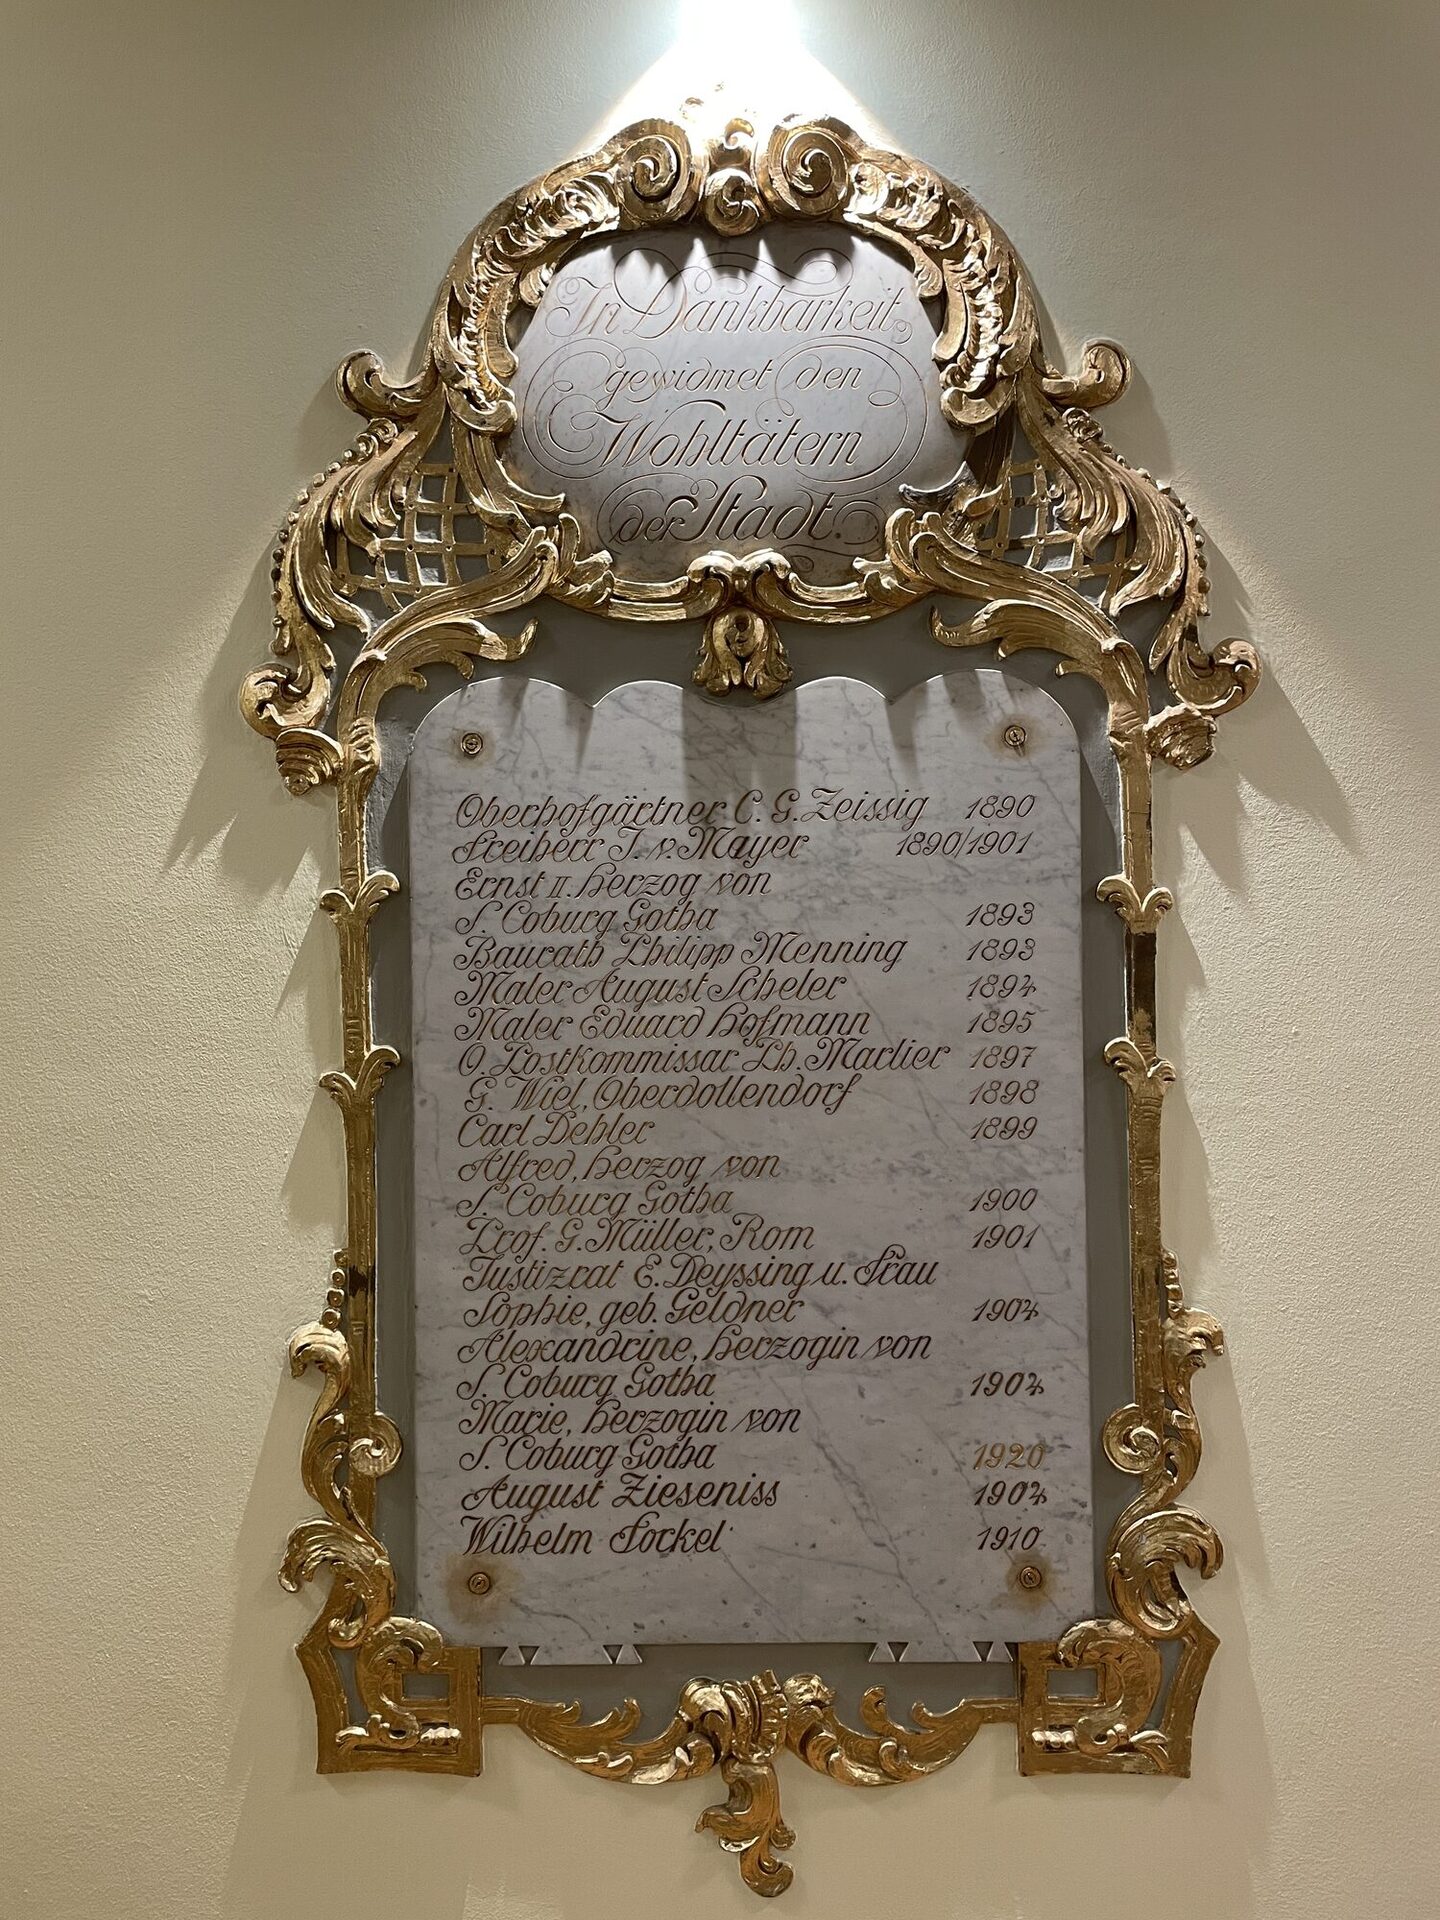 In Dankbarkeit
gewidmet den
Wohltätern
der Stadt.
Oberhofgärtner C. G. Zeissig 1890
Freiherr J. v. Mayer 1890/1901
Ernst II. Herzog von
S. Coburg Gotha 1893
Baurath Philipp Menning 1893
Maler August Scheler 1894
Maler Eduard Hofmann 1895
O. Postkommissar Ph. Marlier 1897
G. Wiel, Oberdollendorf 1898
Carl Dehler 1899
Alfred, Herzog von
S. Coburg Gotha 1900
Prof. G. Müller, Rom 1901
Justizrat E. Deyssing u. Frau
Sophie, geb. Geldner 1904
Alexandrine, Herzogin von
S. Coburg Gotha 1904
Marie, Herzogin von
S. Coburg Gotha 1920
August Zieseniss 1904
Wilhelm Fockel 1910